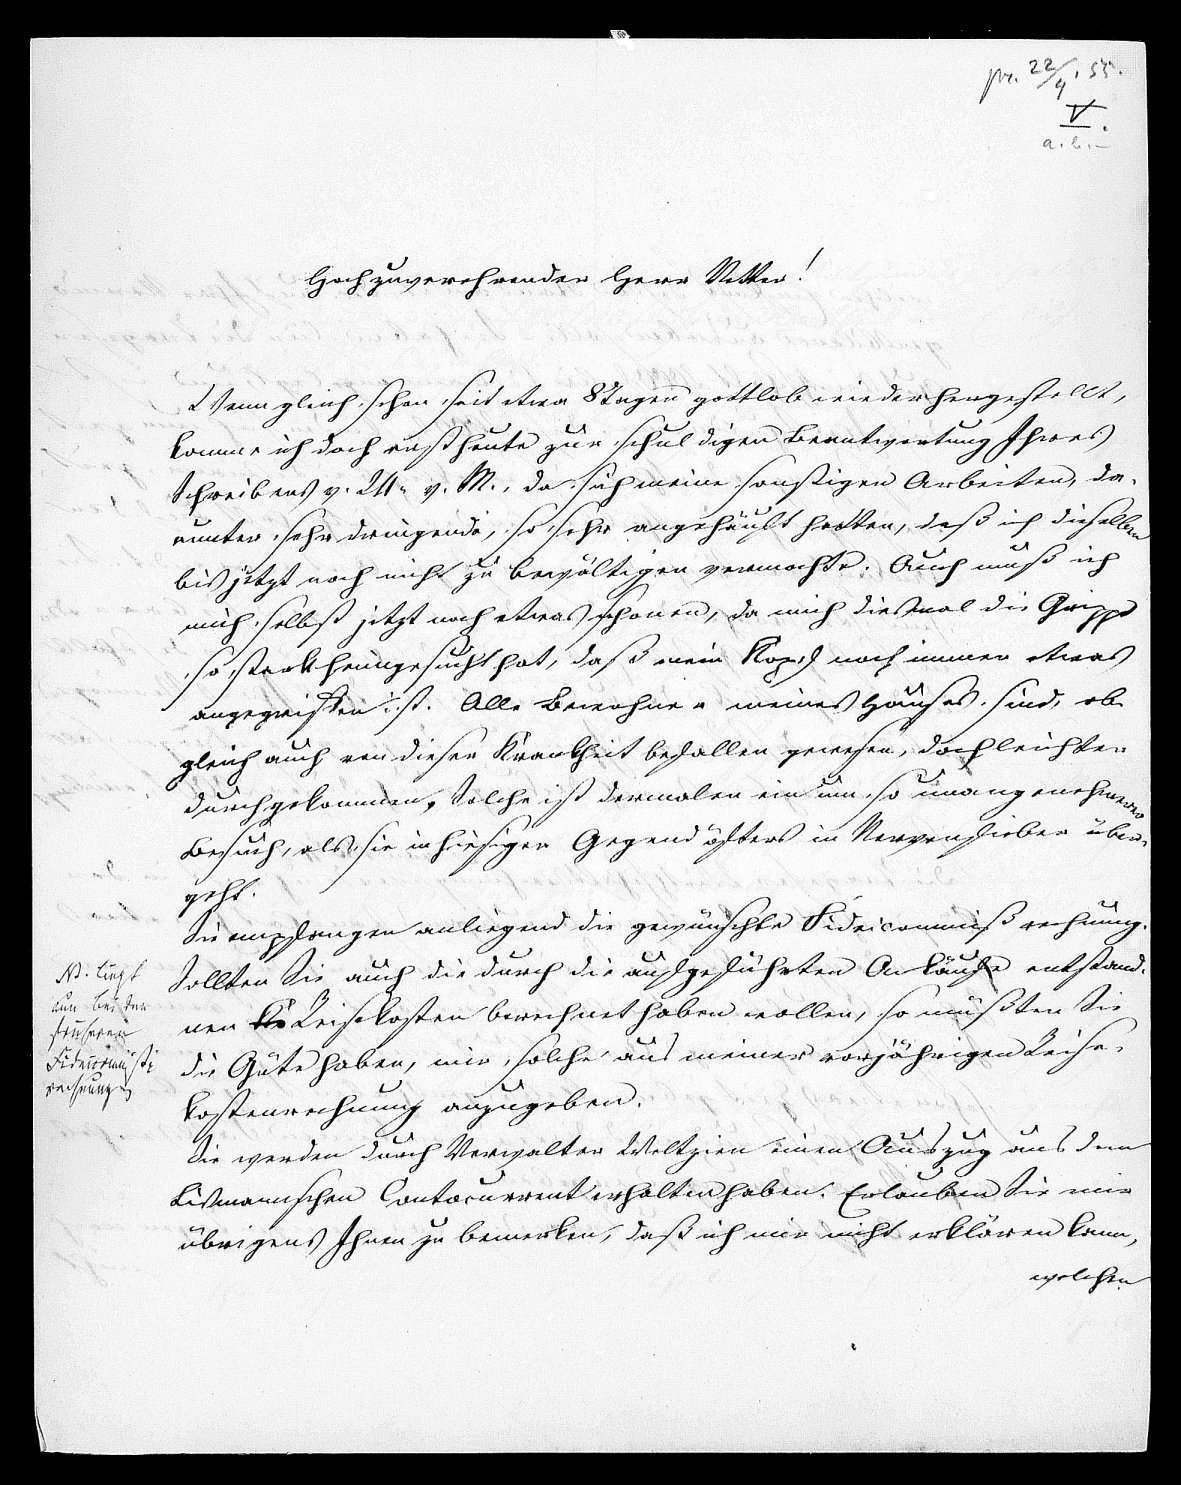 pr. 22/4. 55.
V.
Hochzuverehrender Herr Vetter!
Wenn gleich schon seit etwa 8 Tagen gottlob wiederhergestellt,
komme ich doch erst heute zur schuldigen Beantwortung Ihres
Schreibens v. 24. v. M., da sich meine sonstigen Arbeiten, da-
runter sehr dringende, so sehr angehäuft hatten, daß ich dieselben
bis jetzt noch nicht zu bewältigen vermochte. Auch muß ich
mich selbst jetzt noch etwas schonen, da mich diesmal die Grippe
so stark heimgesucht hat, daß mein Kopf noch immer etwas
angegriffen ist. Alle Bewohner meines Hauses sind, ob-
gleich auch von dieser Krankheit befallen gewesen, doch leichter
durchgekommen. Solche ist dermalen ein um so unangenehmerer
Besuch, als sie in hiesiger Gegend öfters in Nervenfieber über-
geht.
Sie empfangen anliegend die gewünschte Fideicommißrechnung.
Sollten Sie auch die durch die aufgeführten Ankäufe entstand-
nen Reisekosten berechnet haben wollen, so müßten Sie
die Güte haben, mir solche aus meiner vorjährigen Reise-
kostenrechnung anzugeben.
Sie werden durch Verwalter Weltzien einen Auszug aus dem
Lismannschen Contocurrent erhalten haben. Erlauben Sie mir
übrigens Ihnen zu bemerken, daß ich mir nicht erklären kann,
welchen
NB. liegt
nun bei der
früheren
Fideicommiß-
rechnung